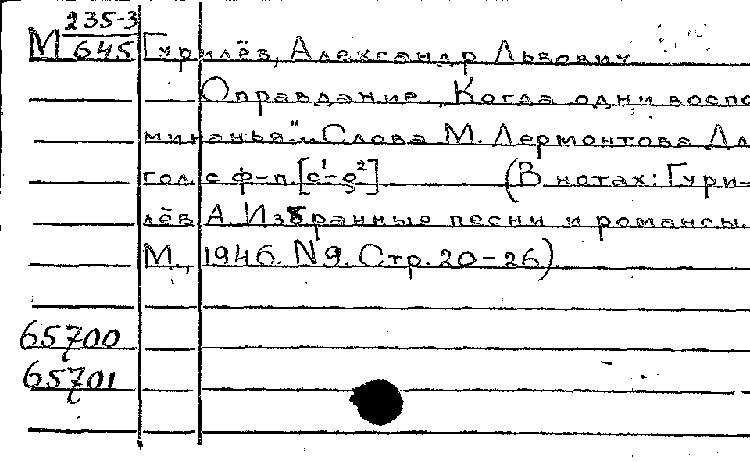 М 235-3/645
Гурилёв, Александр Львович
Оправдание „Когда одни воспо-
минанья". Слова М. Лермонтова Дл
гол. с ф-п. [c¹-g²] (В нотах: Гури-
лёв А. Избранные песни и романсы.
М., 1946. N9. Стр. 20-26)
65700
65701